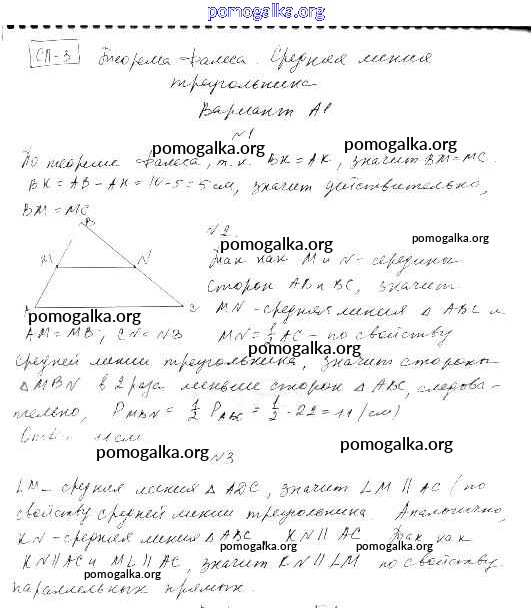 pomogalka.org
СП-3 Теорема Фалеса. Средняя линия
треугольника
Вариант А1
pomogalka.org
№1
pomogalka.org
По теореме Фалеса, т.к. BK = AK, значит BM = MC.
pomogalka.org
BK = AB - AK = 10 - 5 = 5 см, значит действительно,
BM = MC
B
№2.
pomogalka.org
pomogalka.org
M N
Так как M и N - середины
сторон AB и BC, значит
C
MN - средняя линия Δ ABC и
pomogalka.org
AM = MB; CN = NB MN = 1/2 AC - по свойству
pomogalka.org
средней линии треугольника, значит стороны
Δ MBN в 2 раза меньше сторон Δ ABC, следова-
pomogalka.org
тельно, P MBN = 1/2 P ABC = 1/2 · 22 = 11 (см)
11 см
pomogalka.org
pomogalka.org
№3
LM - средняя линия Δ ADC, значит LM || AC (по
pomogalka.org
свойству средней линии треугольника. Аналогично,
KN - средняя линия Δ ABC KN || AC Так как
pomogalka.org
pomogalka.org
KN || AC и ML || AC, значит KN || LM по свойству
pomogalka.org
pomogalka.org
параллельных прямых.